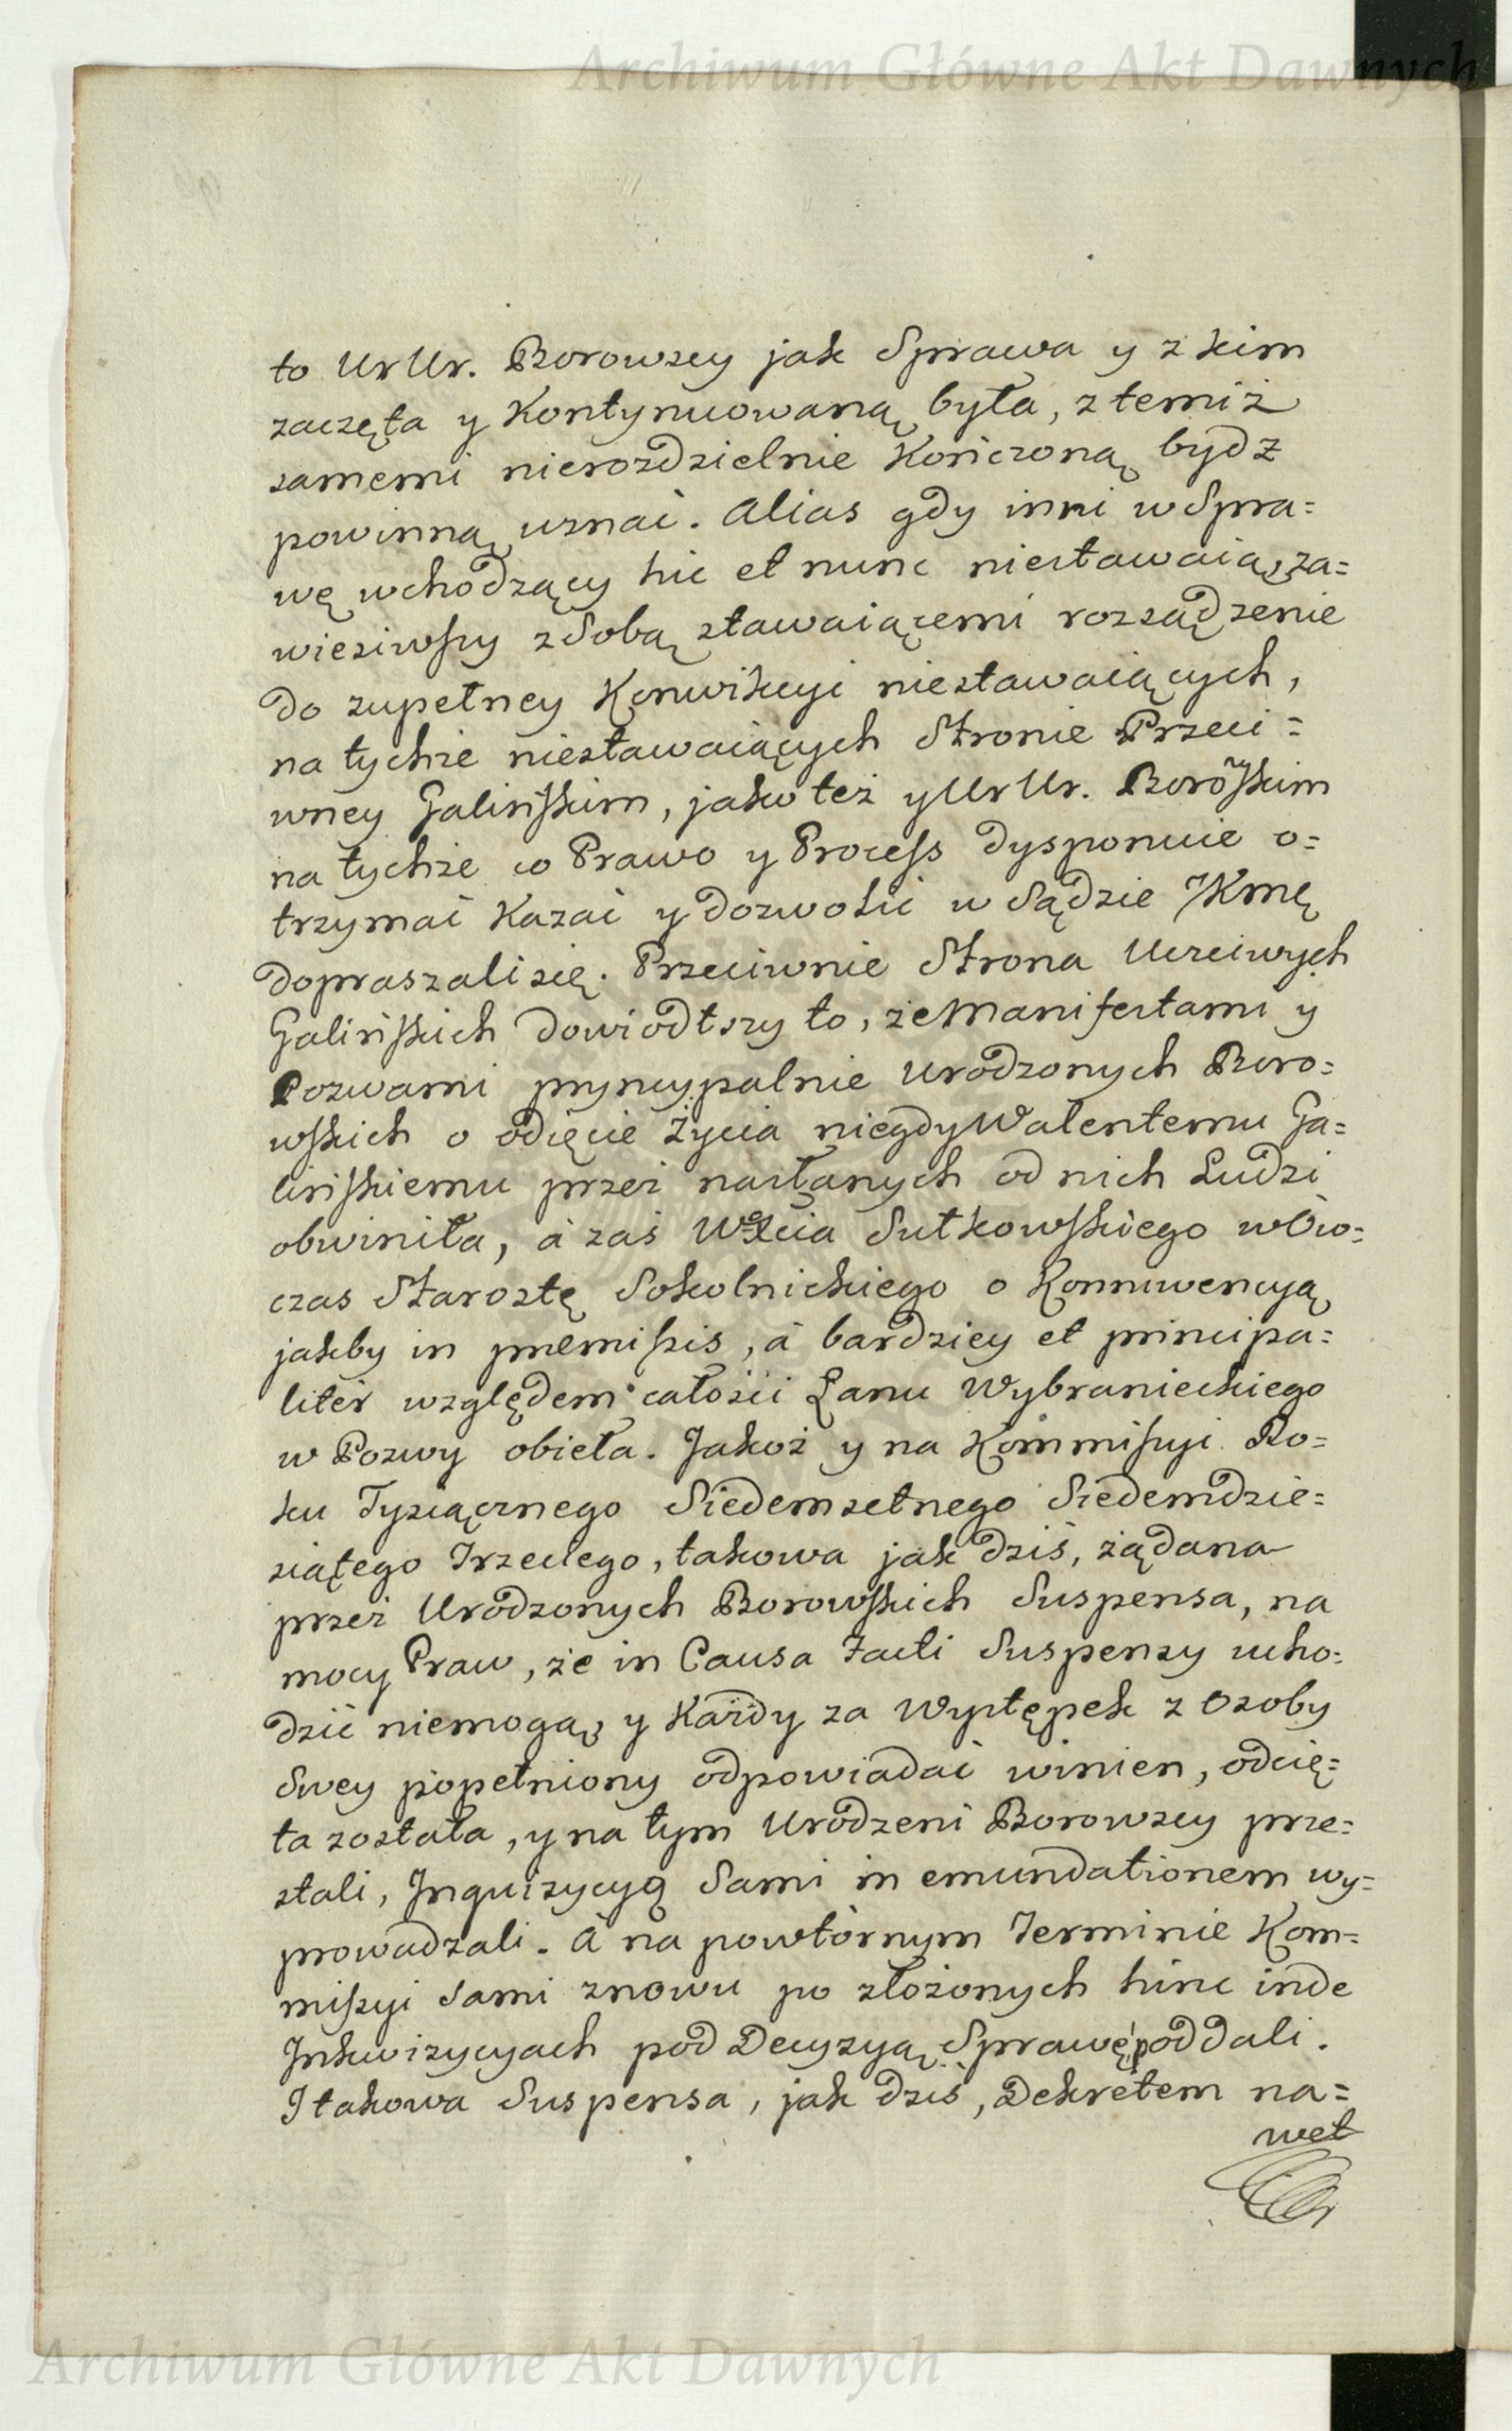 Archiwum Główne Akt Dawnych
to Ur Ur. Borowscy jak Sprawa y z kim
zaczęta y Kontynuowaną była, z temiż
samemi nierozdzielnie Kończoną bydź
powinną uznać. Alias gdy inni w Spra=
wę wchodzący hic et nunc niestawaią, za=
wiesiwszy z Sobą stawaiącemi rozsądzenie
do zupełney Konwikcyi niestawaiących,
na tychże niestawaiących Stronie Przeci=
wney Galińskim, jako też y Ur Ur. Borõskim
na tychże co Prawo y Process dysponuie o=
trzymać Kazać y dozwolić w Sądzie JKmę
dopraszali się. Przeciwnie Strona Uczciwych
Galińskich dowiodłszy to, że Manifestami y
Pozwami pryncypalnie Urodzonych Boro=
wskich o odięcie życia niegdy Walentemu Ga=
lińskiemu przez nasłanych od nich Ludzi
obwiniła, á zaś Wgo Xcia Sułkowskiego wów=
czas Starostę Sokolnickiego o Konniwencyą
jakby in premissis, á bardziey et principa=
liter względem całości Łanu Wybranieckiego
w Pozwy obieła. Jakoż y na Kommissyi Ro=
ku Tysiącznego Siedemsetnego Siedemdzie=
siątego Trzeciego, takowa jak dziś, żądana
przez Urodzonych Borowskich Suspensa, na
mocy Praw, że in Causa facti Suspensy ucho=
dzić niemogą, y Każdy za Występek z Osoby
Swey popełniony odpowiadać winien, odcię=
ta została, y na tym Urodzeni Borowscy prze=
stali, Inquizycyą Sami in emundationem wy=
prowadzali. A na powtórnym Terminie Kom=
missyi Sami znowu po złożonych hinc inde
Inkwizycyach pod Decyzyą Sprawę poddali.
I takowa Suspensa, jak dziś, Dekretem na=
wet
Archiwum Główne Akt Dawnych